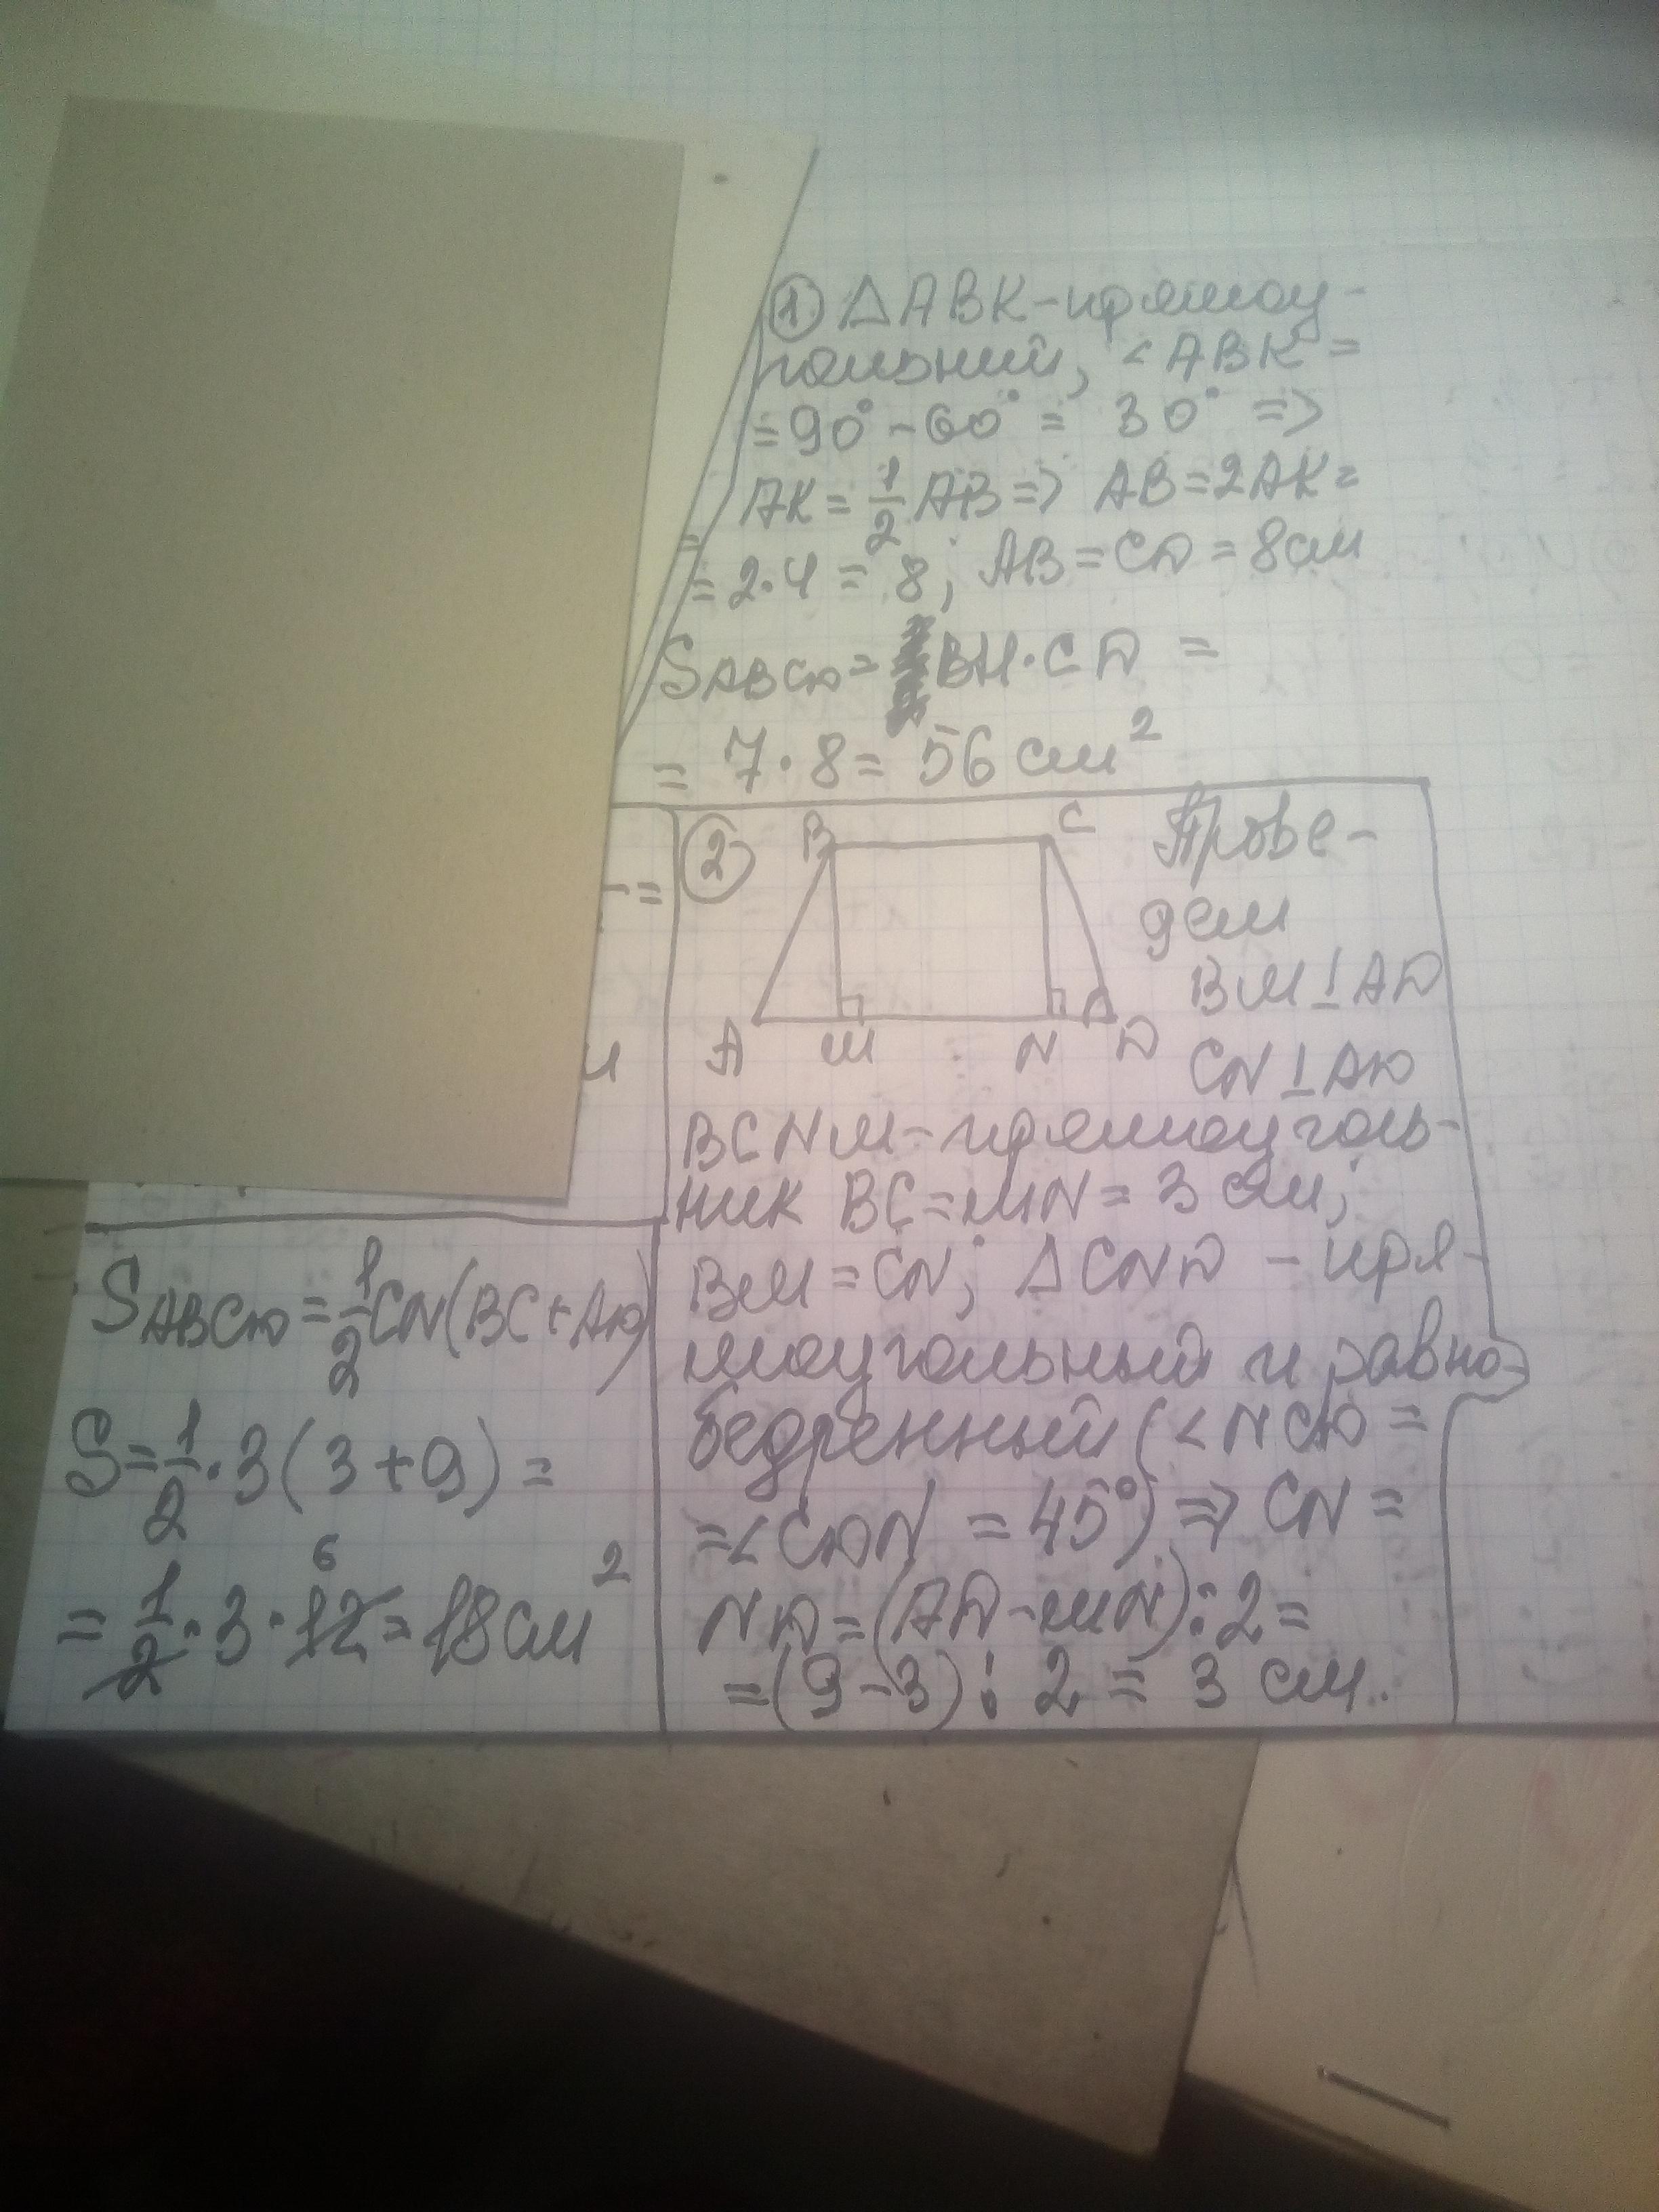 ① ΔABK - прямоу-
гольний, <ABK =
= 90° - 60° = 30° =>
AK = 1/2 AB => AB = 2AK =
= 2·4 = 8; AB = CD = 8см
SABCD = BH·CD =
= 7·8 = 56 см²
②
B C
A M N D
Прове-
дем
BM⊥AD
CN⊥AD
BCNM - прямоуголь-
ник BC = MN = 3 см;
BM = CN; ΔCND - пря-
моугольный и равно-
бедренный (<NCD =
= <CDN = 45°) => CN =
ND = (AD - MN) : 2 =
= (9 - 3) : 2 = 3 см.
SABCD = 1/2 CN(BC + AD)
S = 1/2 · 3(3 + 9) =
6
= 1/2 · 3 · 12 = 18 см²